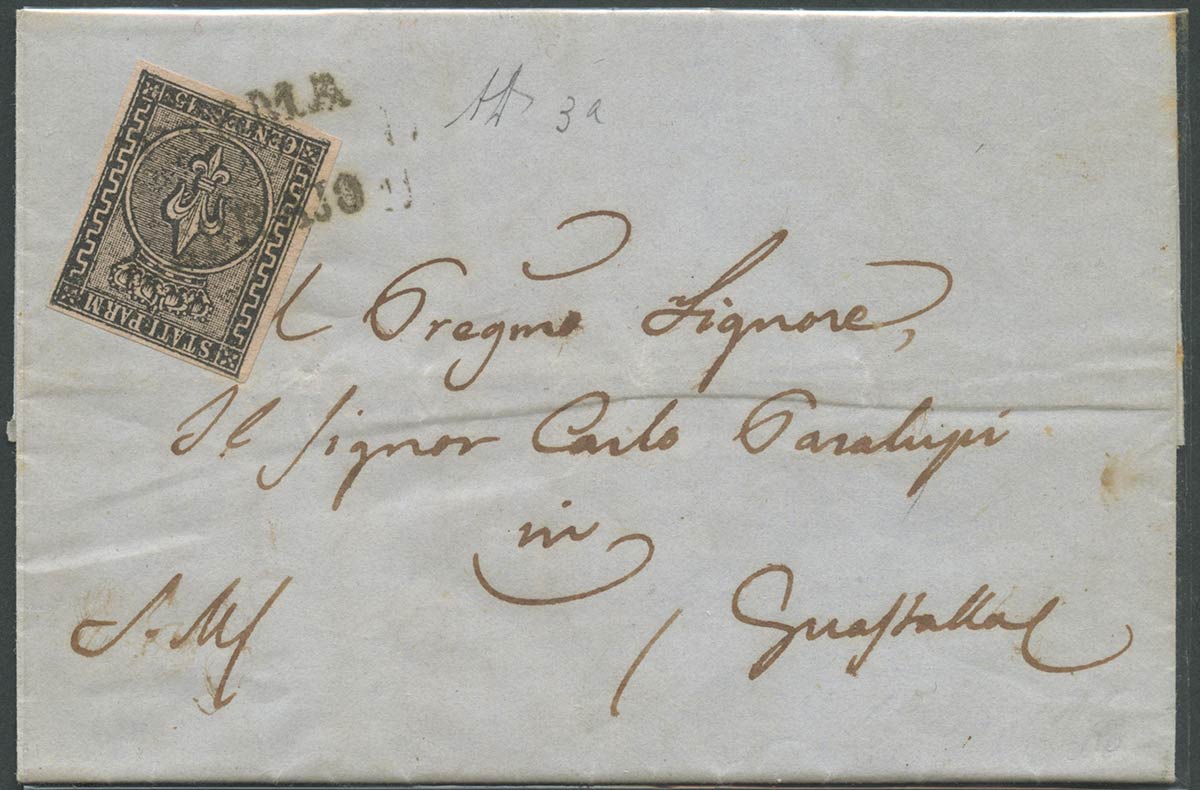 CENT. 15
STATI PARM
3a
Pregmo Signore,
Il Signor Carlo Paralupi
in
Guastalla